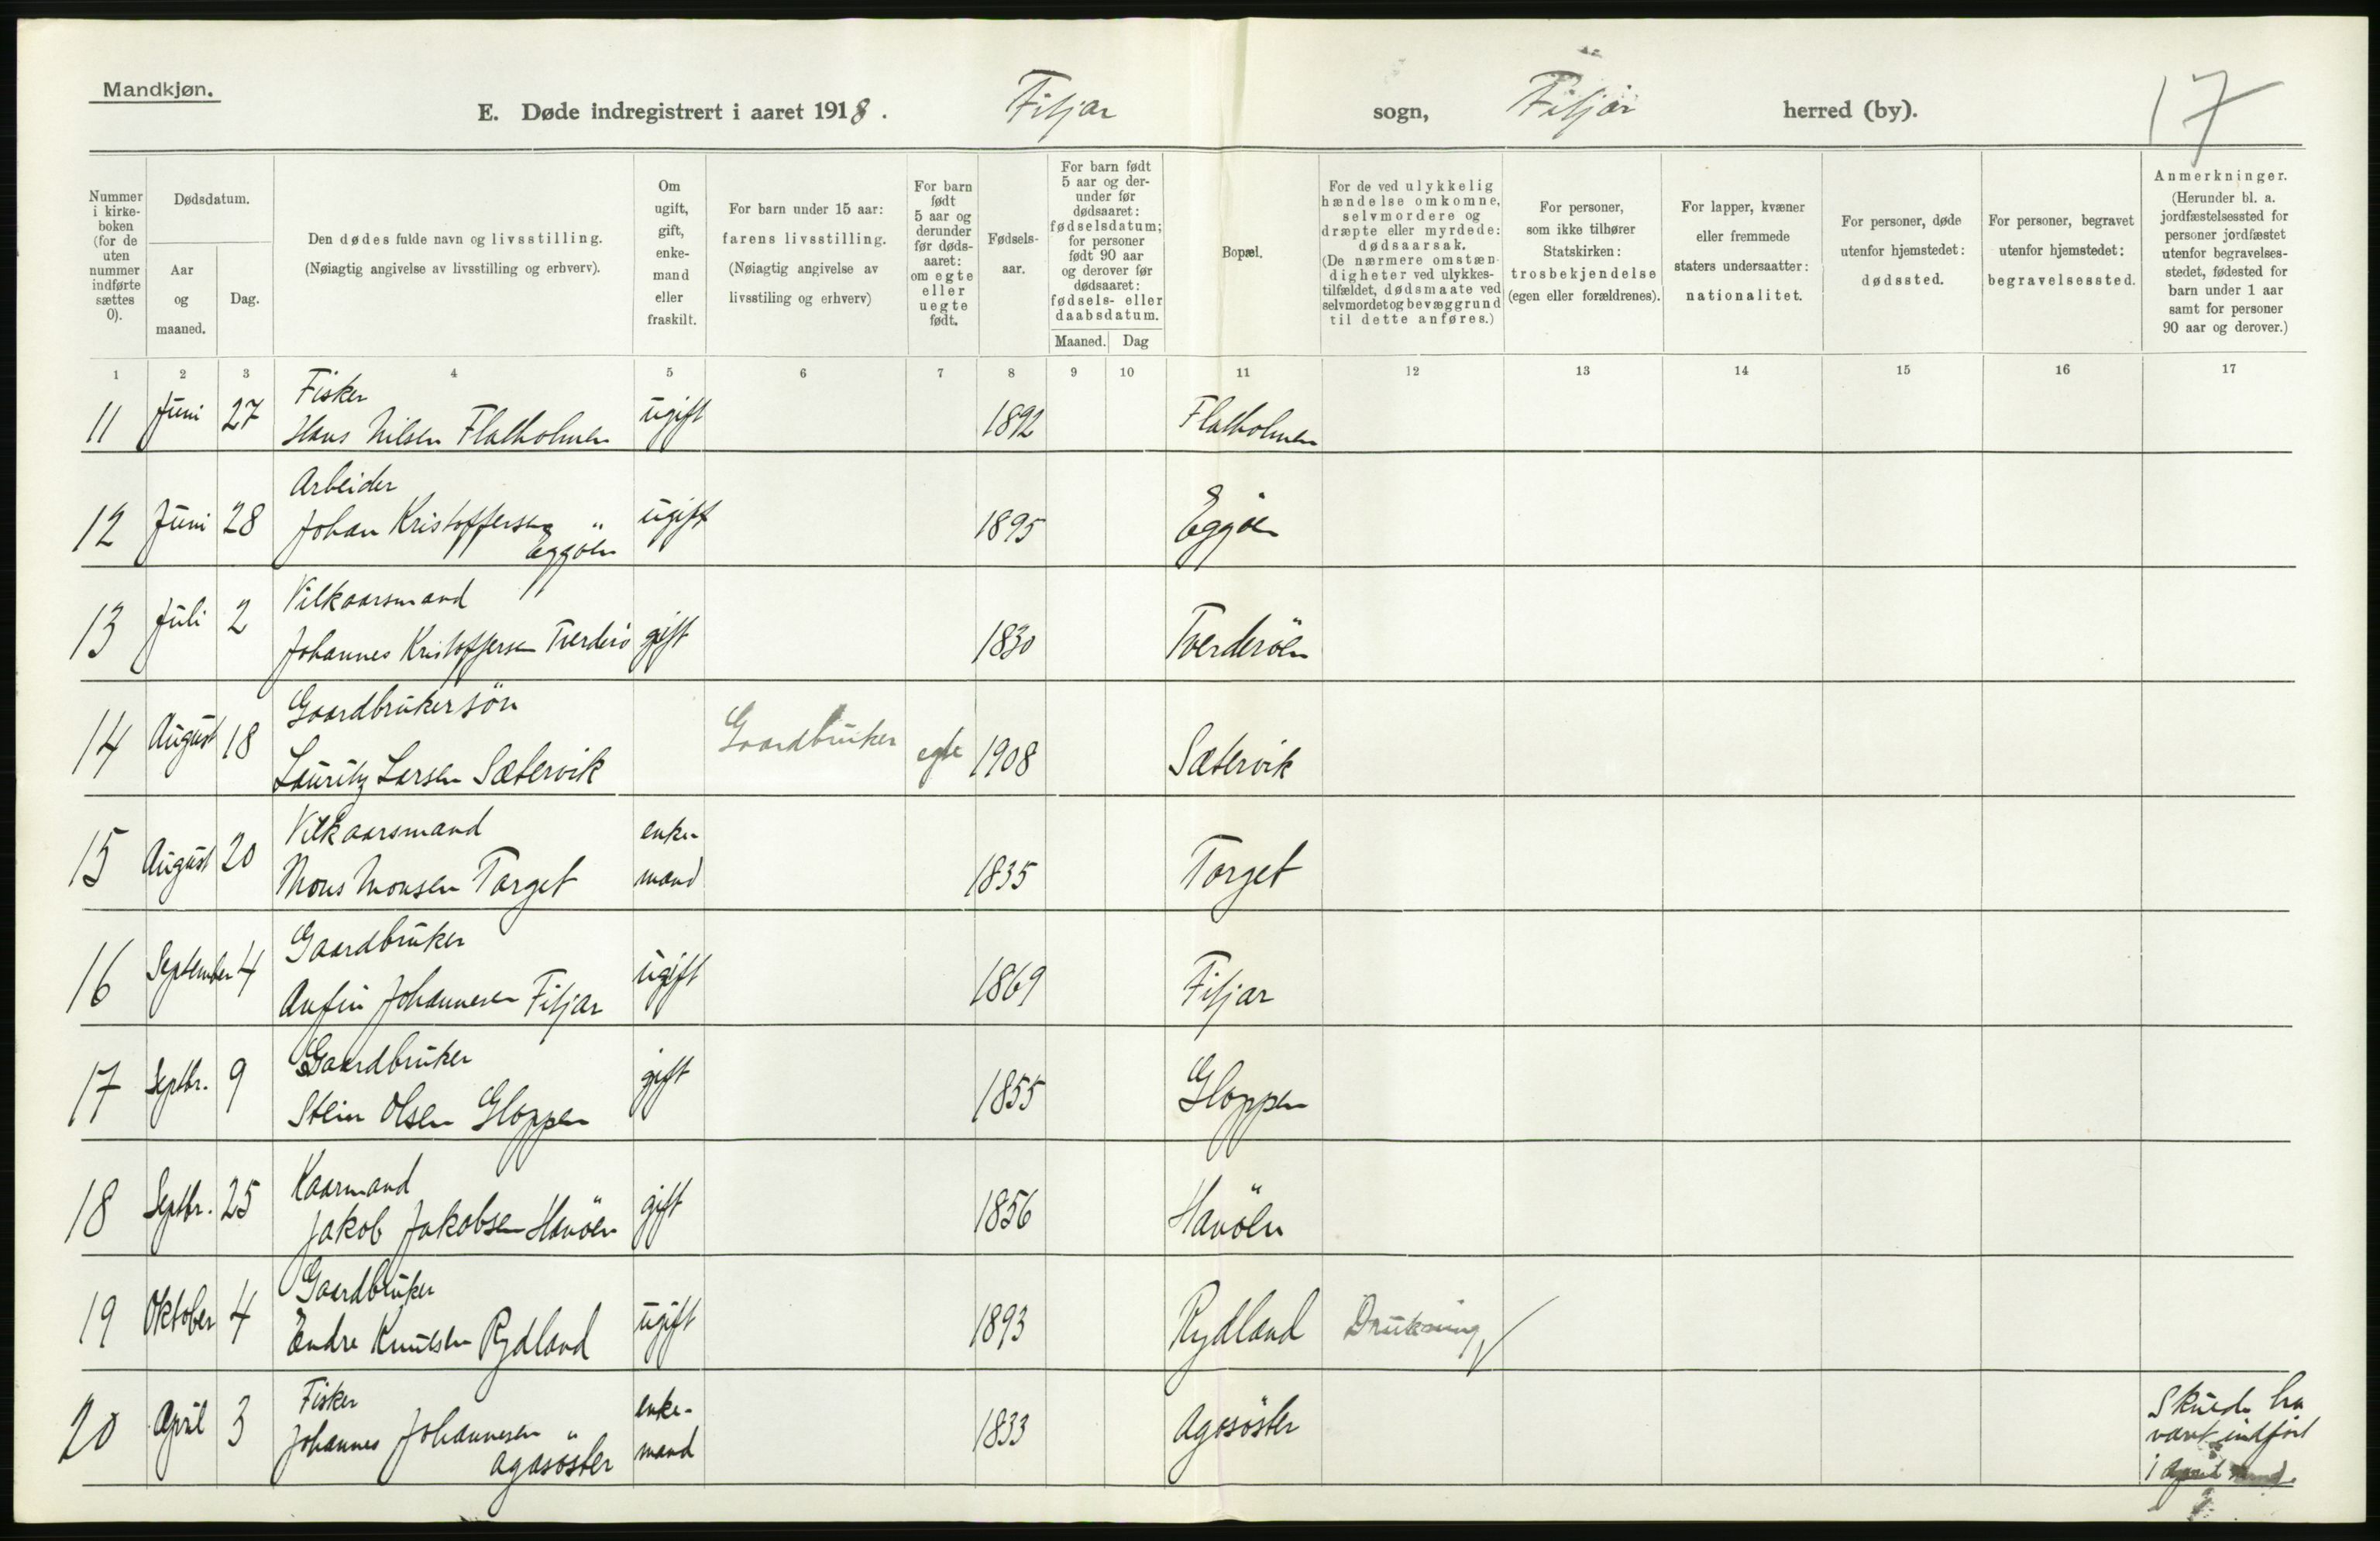 Mandkjøn.
E. Døde indregistrert i aaret 1918. Fitjar sogn, Fitjar herred (by).
17
Nummer i kirkeboken (for de uten nummer indførte sættes 0).
Dødsdatum.
Aar og maaned.
Dag.
Den dødes fulde navn og livsstilling. (Nøiagtig angivelse av livsstilling og erhverv).
Om ugift, gift, enkemand eller fraskilt.
For barn under 15 aar: farens livsstilling. (Nøiagtig angivelse av livsstiling og erhverv)
For barn født 5 aar og derunder før dødsaaret: om egte eller uegte født.
Fødselsaar.
For barn født 5 aar og derunder før dødsaaret: fødselsdatum; for personer født 90 aar og derover før dødsaaret: fødsels- eller daabsdatum.
Maaned. Dag
Bopæl.
For de ved ulykkelig hændelse omkomne, selvmordere og dræpte eller myrdede: dødsaarsak. (De nærmere omstændigheter ved ulykkestilfældet, dødsmaate ved selvmordet og bevæggrund til dette anføres.)
For personer, som ikke tilhører Statskirken: trosbekjendelse (egen eller forældrenes).
For lapper, kvæner eller fremmede staters undersaatter: nationalitet.
For personer, døde utenfor hjemstedet: dødssted.
For personer, begravet utenfor hjemstedet: begravelsessted.
Anmerkninger. (Herunder bl. a. jordfæstelsessted for personer jordfæstet utenfor begravelsesstedet, fødested for barn under 1 aar samt for personer 90 aar og derover.)
1 2 3 4 5 6 7 8 9 10 11 12 13 14 15 16 17
Fisker
11 Juni 27 Hans Nilsen Flatholmen ugift 1892 Flatholmen
Arbeider
12 Juni 28 Johan Kristoffersen ugift 1895 Eggøen
Eggøen
Vilkaarsmand
13 Juli 2 Johannes Kristoffersen Tverderö gift 1830 Tverderöen
Gaardbrukersön
14 August 18 Lauritz Larsen Sætervik Gaardbruker egte 1908 Sætervik
Vilkaarsmand enke-
15 August 20 Mons Monsen Torget mand 1835 Torget
Gaardbruker
16 September 4 Anfin Johannesen Fitjar ugift 1869 Fitjar
Gaardbruker
17 Septbr. 9 Stein Olsen Gloppen gift 1855 Gloppen
Kaarmand
18 Septbr. 25 Jakob Jakobsen Havöen gift 1856 Havöen
Gaardbruker
19 Oktober 4 Endre Knutsen Rydland ugift 1893 Rydland Drukning
Fisker enke-
20 April 3 Johannes Johannesen mand 1833 Agasöster
Agasöster
Skulde ha
vært indfört
i April